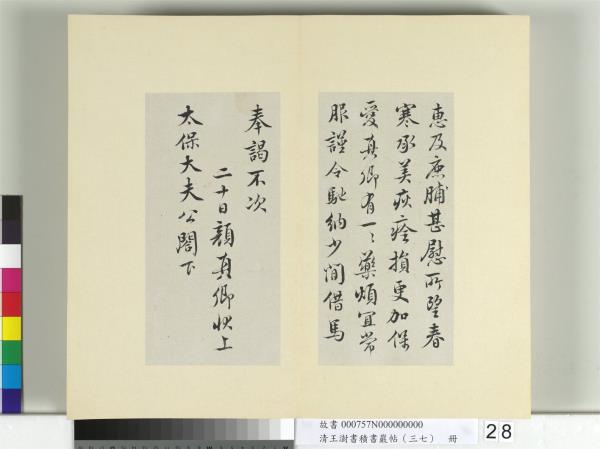 惠及鹿脯甚慰所望春
寒承美疢痊損更加保
愛真卿有一二藥煩宜常
服謹令馳納少間借馬
奉謁不次
二十日顏真卿狀上
太保大夫公閣下
故書 000757N000000000
清王澍書積書巖帖(三七) 冊
28